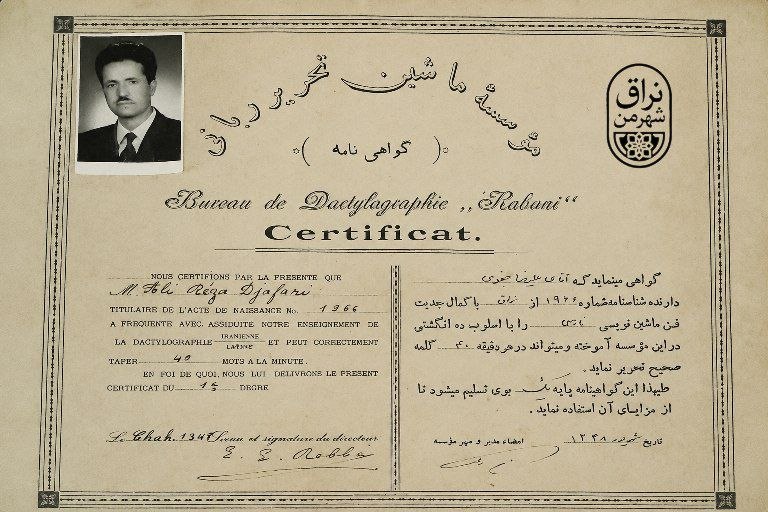 مؤسسهٔ ماشین تحریر ربانی
( گواهی نامه )
نراق
شهر من
Bureau de Dactylographie „Rabani“
Certificat.
NOUS CERTIFIONS PAR LA PRESENTE QUE
M. Ali Réza Djafari
TITULAIRE DE L'ACTE DE NAISSANCE No. 1966
A FREQUENTE AVEC ASSIDUITE NOTRE ENSEIGNEMENT DE
LA DACTYLOGRAPHIE IRANIENNE LATINE ET PEUT CORRECTEMENT
TAPER 40 MOTS A LA MINUTE.
EN FOI DE QUOI, NOUS LUI DELIVRONS LE PRESENT
CERTIFICAT DU DEGRE
Chah. Sceau et signature du directeur
گواهی مینماید که آقای علیرضا جعفری
دارنده شناسنامه شماره ۱۹۶۶ از نراق با کمال جدیت
فن ماشین نویسی فارسی را با اسلوب ده انگشتی
در این مؤسسه آموخته و میتواند در هر دقیقه ۴۰ کلمه
صحیح تحریر نماید.
علیهذا این گواهینامه پایه یک بوی تسلیم میشود تا
از مزایای آن استفاده نماید.
تاریخ شهریور ۱۳۴۸ امضاء مدیر و مهر مؤسسه